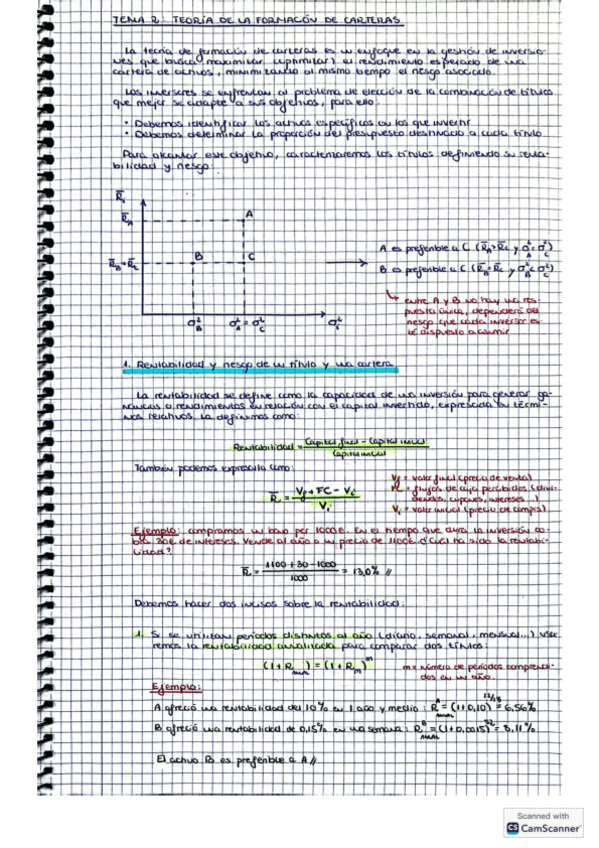 TEMA 2: TEORÍA DE LA FORMACIÓN DE CARTERAS
La teoría de formación de carteras es un enfoque en la gestión de inversio-
nes que busca maximizar (optimizar) el rendimiento esperado de una
cartera de activos, minimizando al mismo tiempo el riesgo asociado.
Los inversores se enfrentan al problema de elección de la combinación de títulos
que mejor se adapte a sus objetivos, para ello:
• Debemos identificar los activos específicos en los que invertir
• Debemos determinar la proporción del presupuesto destinado a cada título
Para alcanzar este objetivo, caracterizaremos los títulos definiendo su renta-
bilidad y riesgo:
R̄i
R̄A
A
R̄B = R̄C
B
C
σ²B
σ²A = σ²C
σ²i
A es preferible a C (R̄A > R̄C y σ²A = σ²C)
B es preferible a C (R̄B = R̄C y σ²B < σ²C)
entre A y B no hay una res-
puesta única, dependerá del
riesgo que cada inversor es-
té dispuesto a asumir
1. Rentabilidad y riesgo de un título y una cartera
La rentabilidad se define como la capacidad de una inversión para generar ga-
nancias o rendimientos en relación con el capital invertido, expresada en térmi-
nos relativos. La definimos como:
Rentabilidad = Capital final - Capital inicial
Capital inicial
También podemos expresarla como:
R̄ = Vf + FC - Vi
Vi
Vf = valor final (precio de venta)
FC = flujos de caja percibidos (divi-
dendos, cupones, intereses...)
Vi = valor inicial (precio de compra)
Ejemplo: compramos un bono por 1000€. En el tiempo que dura la inversión co-
bra 30€ de intereses. Vende al año a un precio de 1100€. ¿Cuál ha sido la rentabi-
lidad?
R̄ = 1100 + 30 - 1000
1000
= 13,0% //
Debemos hacer dos incisos sobre la rentabilidad:
1. Si se utilizan períodos distintos al año (diario, semanal, mensual...) usa-
remos la rentabilidad anualizada para comparar dos títulos:
(1 + R anual) = (1 + Rm)^m
m = número de períodos comprendi-
dos en un año.
Ejemplo:
A ofreció una rentabilidad del 10% en 1 año y medio: R^A anual = (1+0,10)^12/18 = 6,56%
B ofreció una rentabilidad de 0,15% en una semana: R^B anual = (1+0,0015)^52 = 8,11%
El activo B es preferible a A //
Scanned with
CS CamScanner